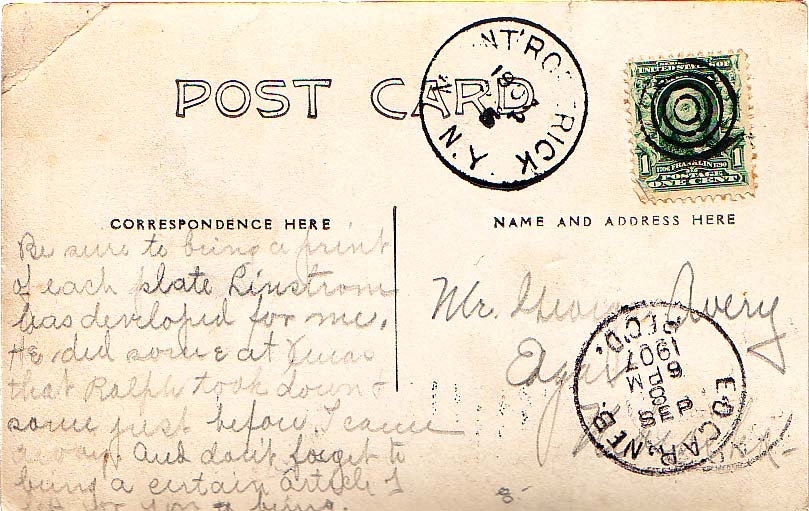 POST CARD
NT'RO RICK N.Y.
UNITED STATES OF
1706 FRANKLIN 1790
1 POSTAGE 1
ONE CENT
CORRESPONDENCE HERE
NAME AND ADDRESS HERE
Be sure to bring a print
of each plate Linstrom
has developed for me.
He did some at Xmas
that Ralph took down &
some just before I came
away. And don't forget to
bring a certain article I
for you to bring.
Mr. George Avery
Edgar
EDGAR, NEB. REC'D.
SEP
8
6 PM
1907
8